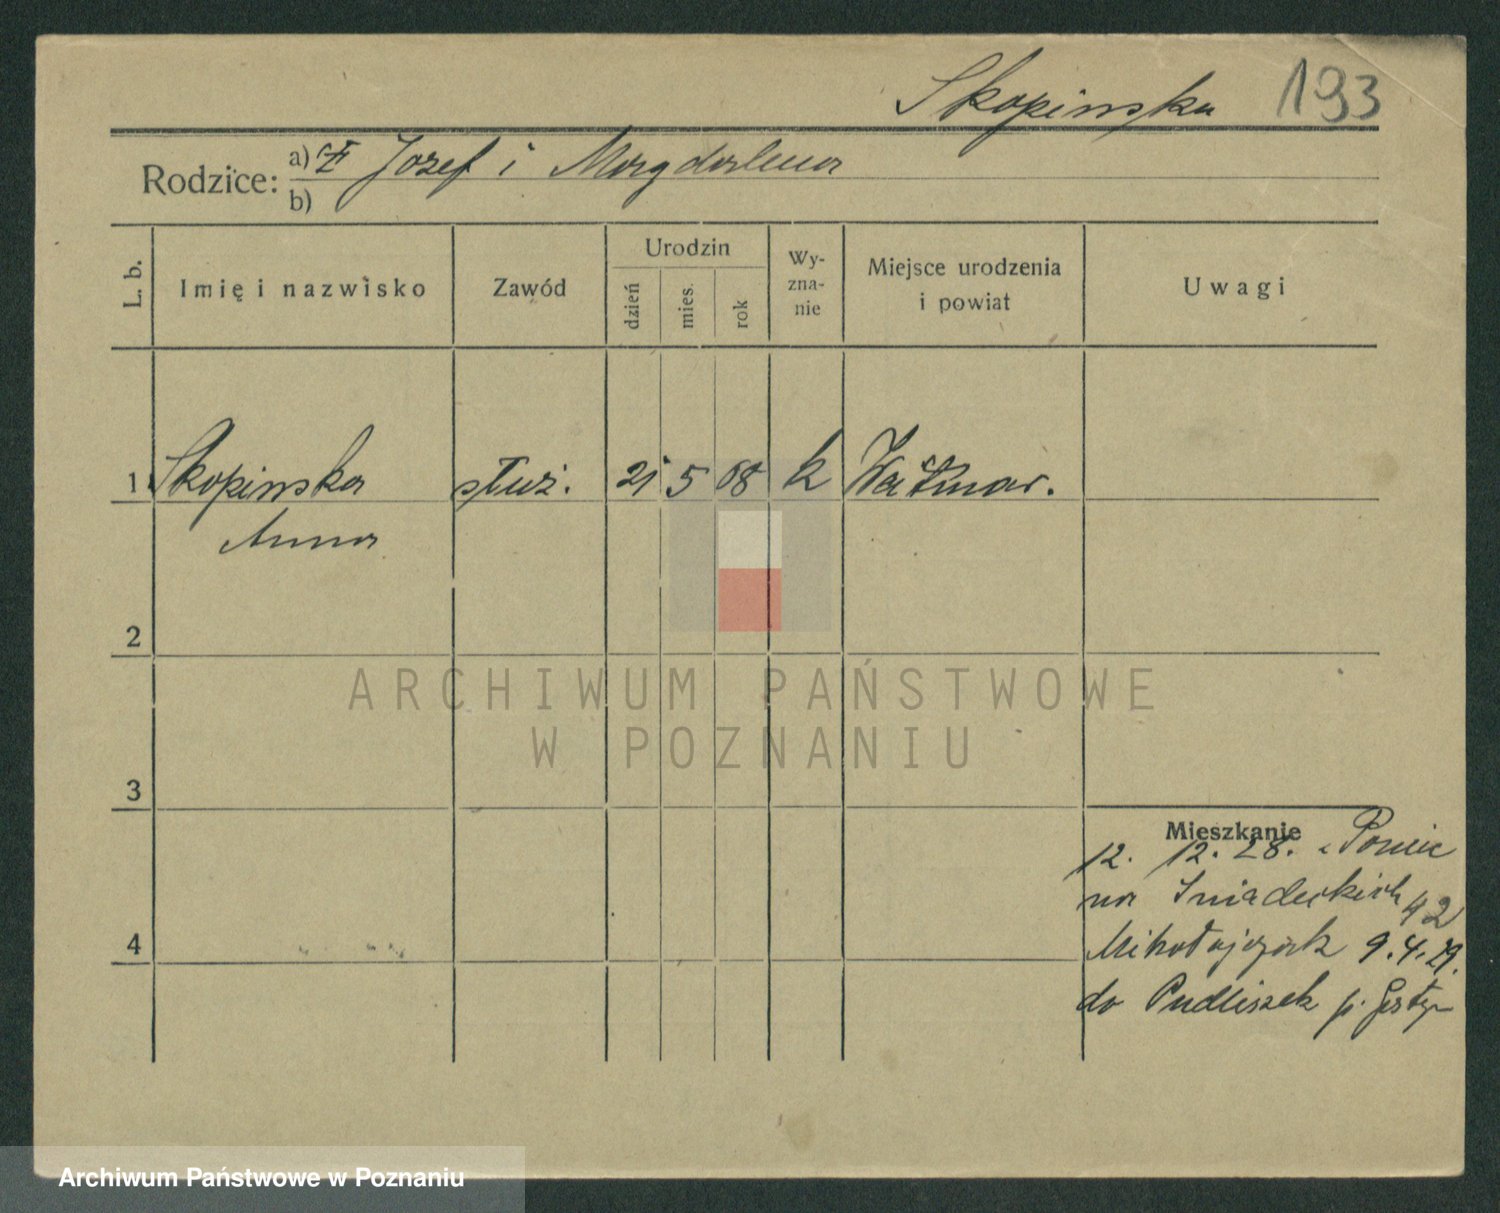 Skopinska 193
Rodzice: a) Józef i Magdalena
b)
L. b. Imię i nazwisko Zawód Urodzin dzień mies. rok Wyznanie Miejsce urodzenia i powiat Uwagi
1 Skopinska służ. 21 5 08 k Weitmar.
Anna
2
ARCHIWUM PAŃSTWOWE
W POZNANIU
3
Mieszkanie
12. 12. 28. z Poniec
na Sniadeckich 42
Mikołajczak 9.4.29.
do Pudliszek p. Gostyń
4
Archiwum Państwowe w Poznaniu